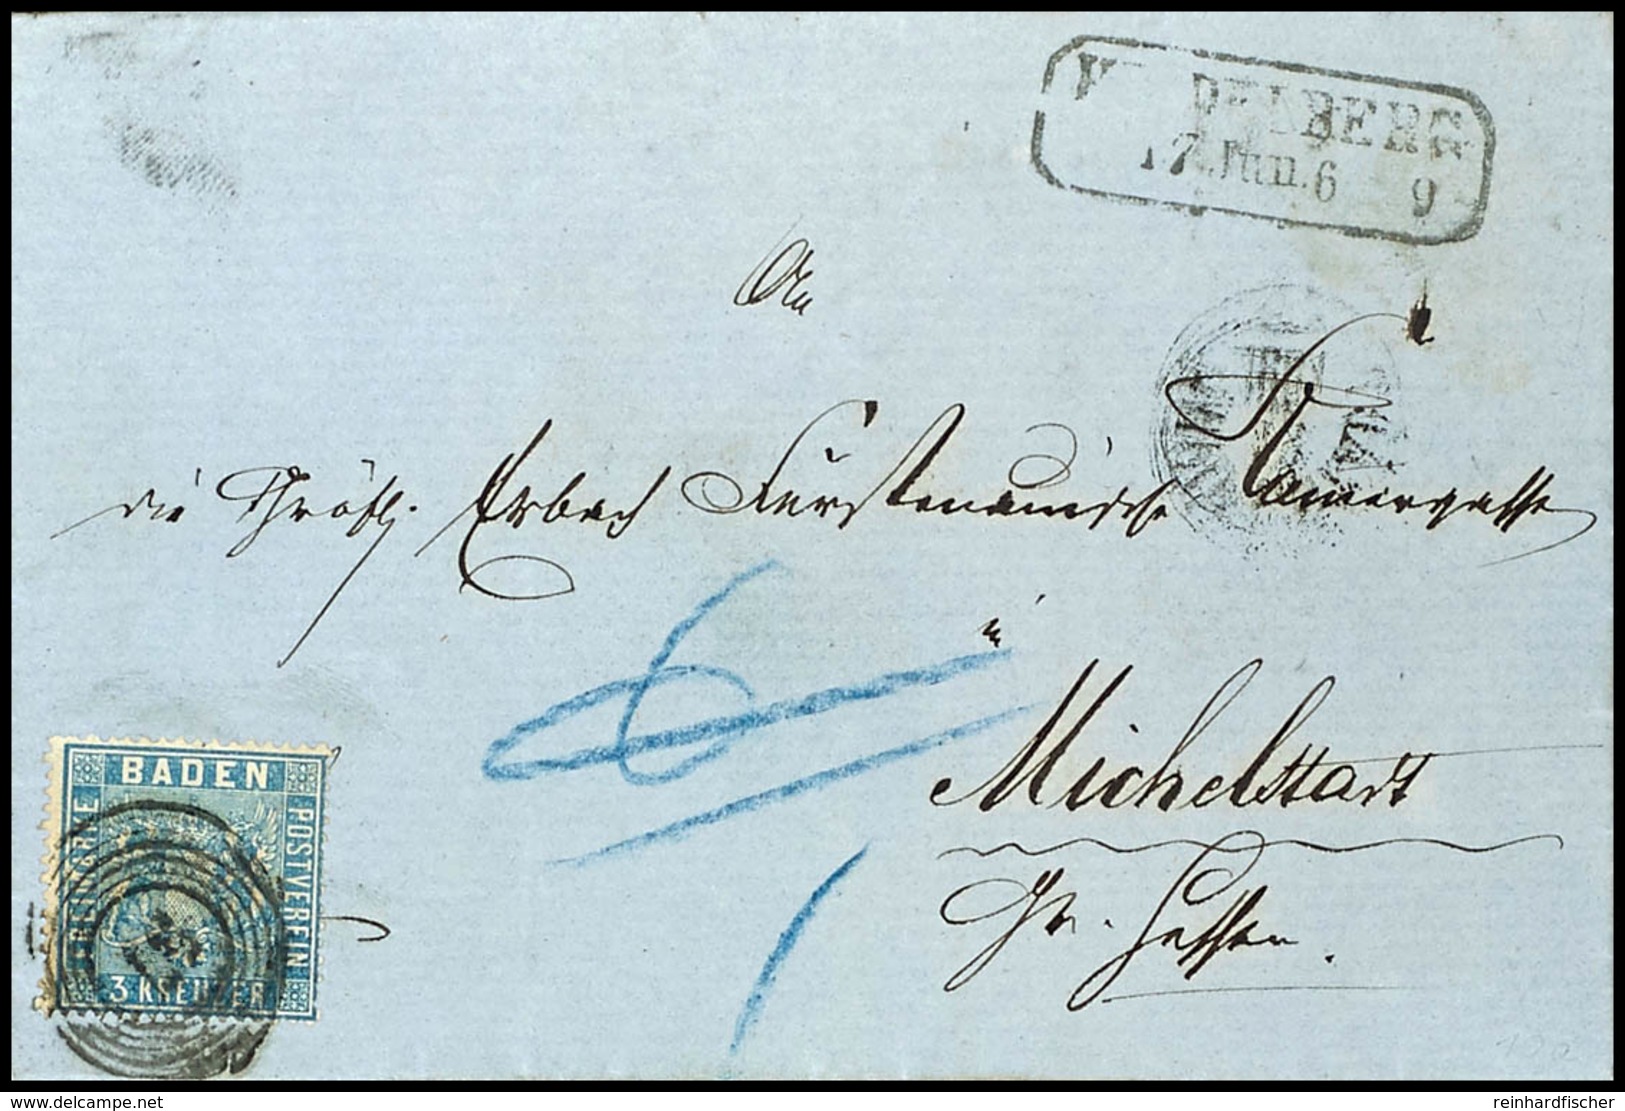 BERG
17. Jun. 6 9
An
die Gräfl. Erbach Fürstenauische
in
Michelstadt
Gr. Hessen.
BADEN
POSTVEREIN
3 KREUZER
delcampe.net
reinhardfischer